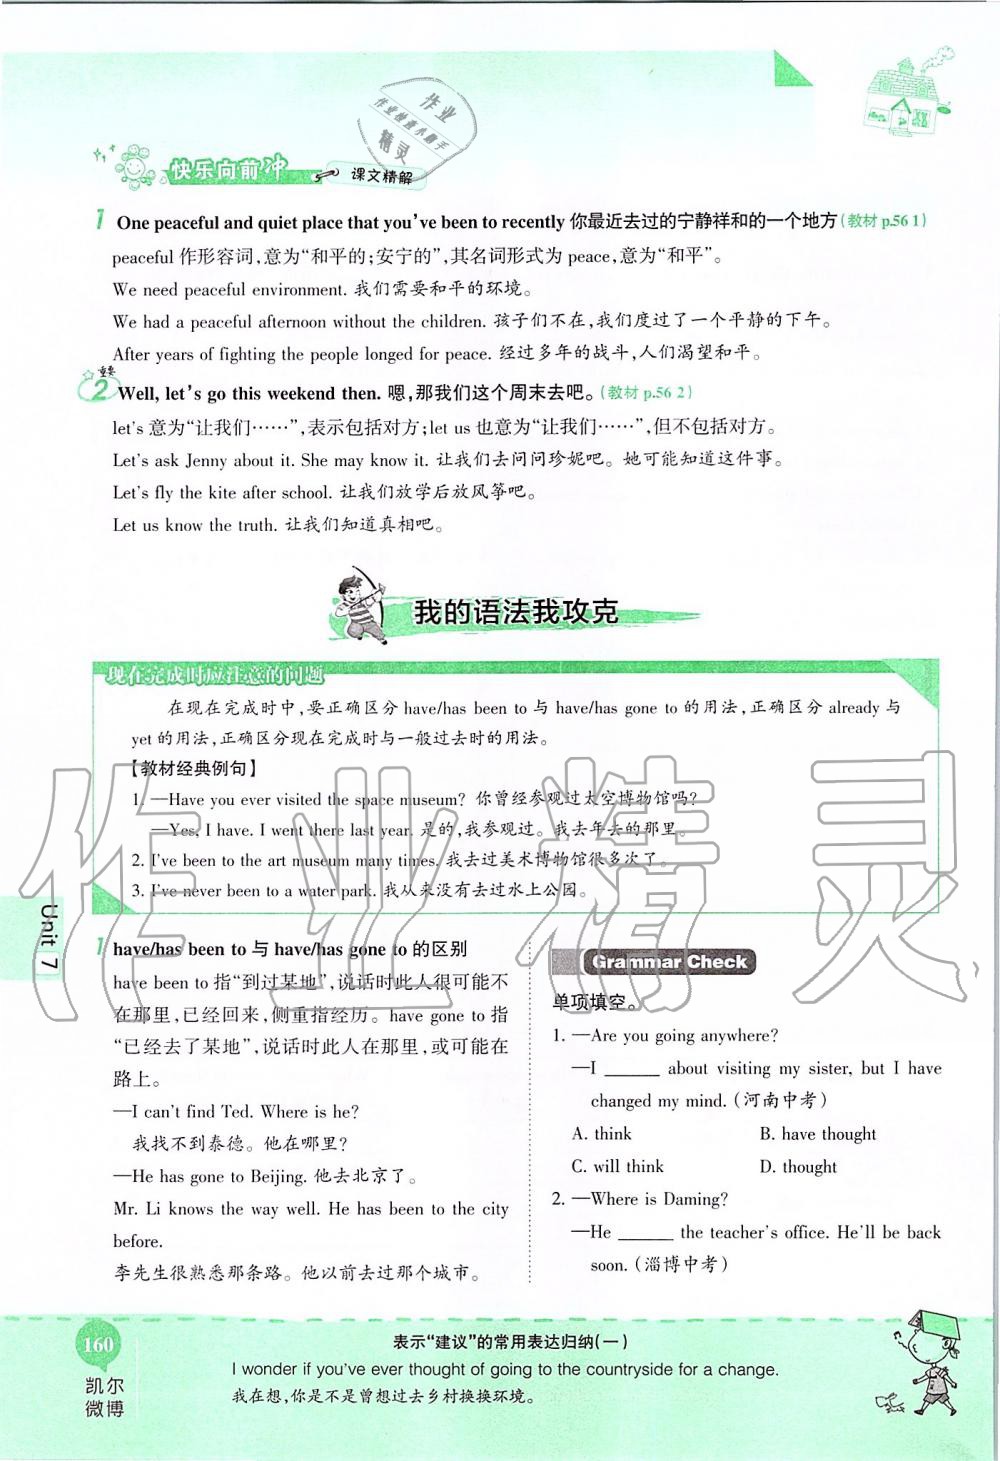 快乐向前冲 课文精解
1 One peaceful and quiet place that you've been to recently 你最近去过的宁静祥和的一个地方(教材 p.56 1)
peaceful 作形容词,意为“和平的;安宁的”,其名词形式为 peace,意为“和平”。
We need peaceful environment. 我们需要和平的环境。
We had a peaceful afternoon without the children. 孩子们不在,我们度过了一个平静的下午。
After years of fighting the people longed for peace. 经过多年的战斗,人们渴望和平。
重要
2 Well, let's go this weekend then. 嗯,那我们这个周末去吧。(教材 p.56 2)
let's 意为“让我们……”,表示包括对方;let us 也意为“让我们……”,但不包括对方。
Let's ask Jenny about it. She may know it. 让我们去问问珍妮吧。她可能知道这件事。
Let's fly the kite after school. 让我们放学后放风筝吧。
Let us know the truth. 让我们知道真相吧。
我的语法我攻克
现在完成时应注意的问题
在现在完成时中,要正确区分 have/has been to 与 have/has gone to 的用法,正确区分 already 与
yet 的用法,正确区分现在完成时与一般过去时的用法。
【教材经典例句】
1. —Have you ever visited the space museum? 你曾经参观过太空博物馆吗?
—Yes, I have. I went there last year. 是的,我参观过。我去年去的那里。
2. I've been to the art museum many times. 我去过美术博物馆很多次了。
3. I've never been to a water park. 我从来没有去过水上公园。
Unit 7
1 have/has been to 与 have/has gone to 的区别
have been to 指“到过某地”,说话时此人很可能不
在那里,已经回来,侧重指经历。have gone to 指
“已经去了某地”,说话时此人在那里,或可能在
路上。
—I can't find Ted. Where is he?
我找不到泰德。他在哪里?
—He has gone to Beijing. 他去北京了。
Mr. Li knows the way well. He has been to the city
before.
李先生很熟悉那条路。他以前去过那个城市。
Grammar Check
单项填空。
1. —Are you going anywhere?
—I ______ about visiting my sister, but I have
changed my mind. (河南中考)
A. think B. have thought
C. will think D. thought
2. —Where is Daming?
—He ______ the teacher's office. He'll be back
soon. (淄博中考)
160
凯尔
微博
表示“建议”的常用表达归纳(一)
I wonder if you've ever thought of going to the countryside for a change.
我在想,你是不是曾想过去乡村换换环境。
作业精灵